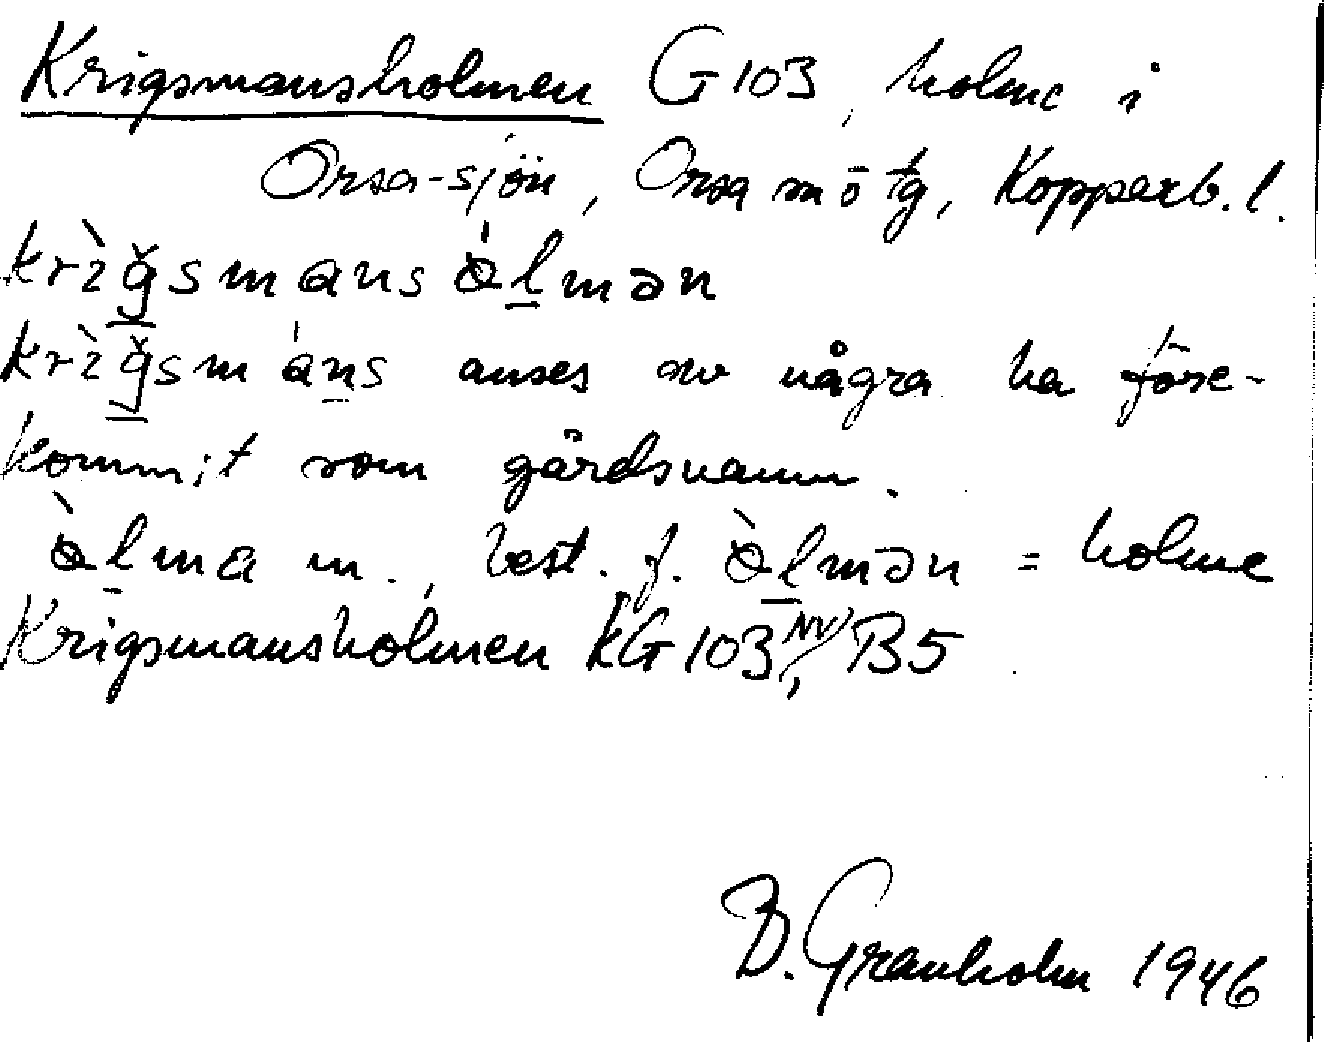 Krigsmansholmen G 103, holme i
Orsa-sjön, Orsa sn o tg, Kopparb. l.
krìğsmansòlmən
krìğsmáns anses av några ha före-
kommit som gårdsnamn.
òlma m., best. f. òlmən = holme
Krigsmansholmen KG 103 NV, B5
B. Granholm 1946